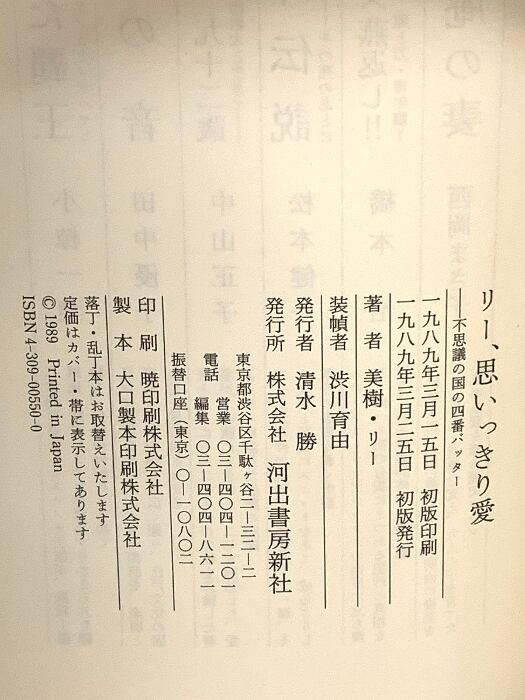 リー、思いっきり愛
――不思議の国の四番バッター
一九八九年三月一五日　初版印刷
一九八九年三月二五日　初版発行
著　者　美樹・リー
装幀者　渋川育由
発行者　清水　勝
発行所　株式会社　河出書房新社
東京都渋谷区千駄ヶ谷二―三二―二
電話　営業　〇三―四〇四―一二〇一
編集　〇三―四〇四―八六一一
振替口座（東京）〇―一〇八〇二
印　刷　暁印刷株式会社
製　本　大口製本印刷株式会社
落丁・乱丁本はお取替えいたします
定価はカバー・帯に表示してあります
©1989　Printed in Japan
ISBN 4-309-00550-0